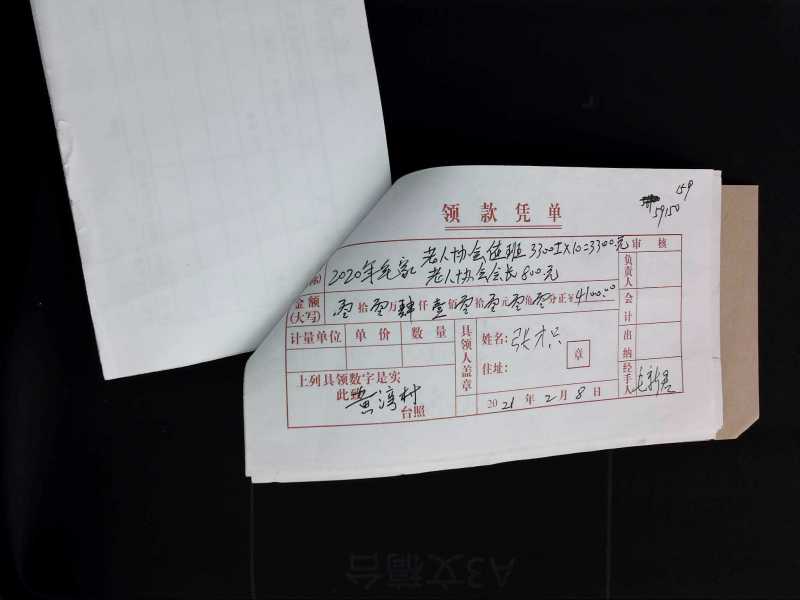 159
59150
领款凭单
老人协会值班 3300 10=3300元
2020年 老人协会会长800元
审核
金额(大写) 零拾零万肆仟壹佰零拾零元零角零分正¥4100.00
负责人
会计
出纳
经手人
计量单位 单价 数量
具领人盖章
姓名:张
章
住址:
上列具领数字是实
此致
村
台照
2021年2月8日
A3文稿台